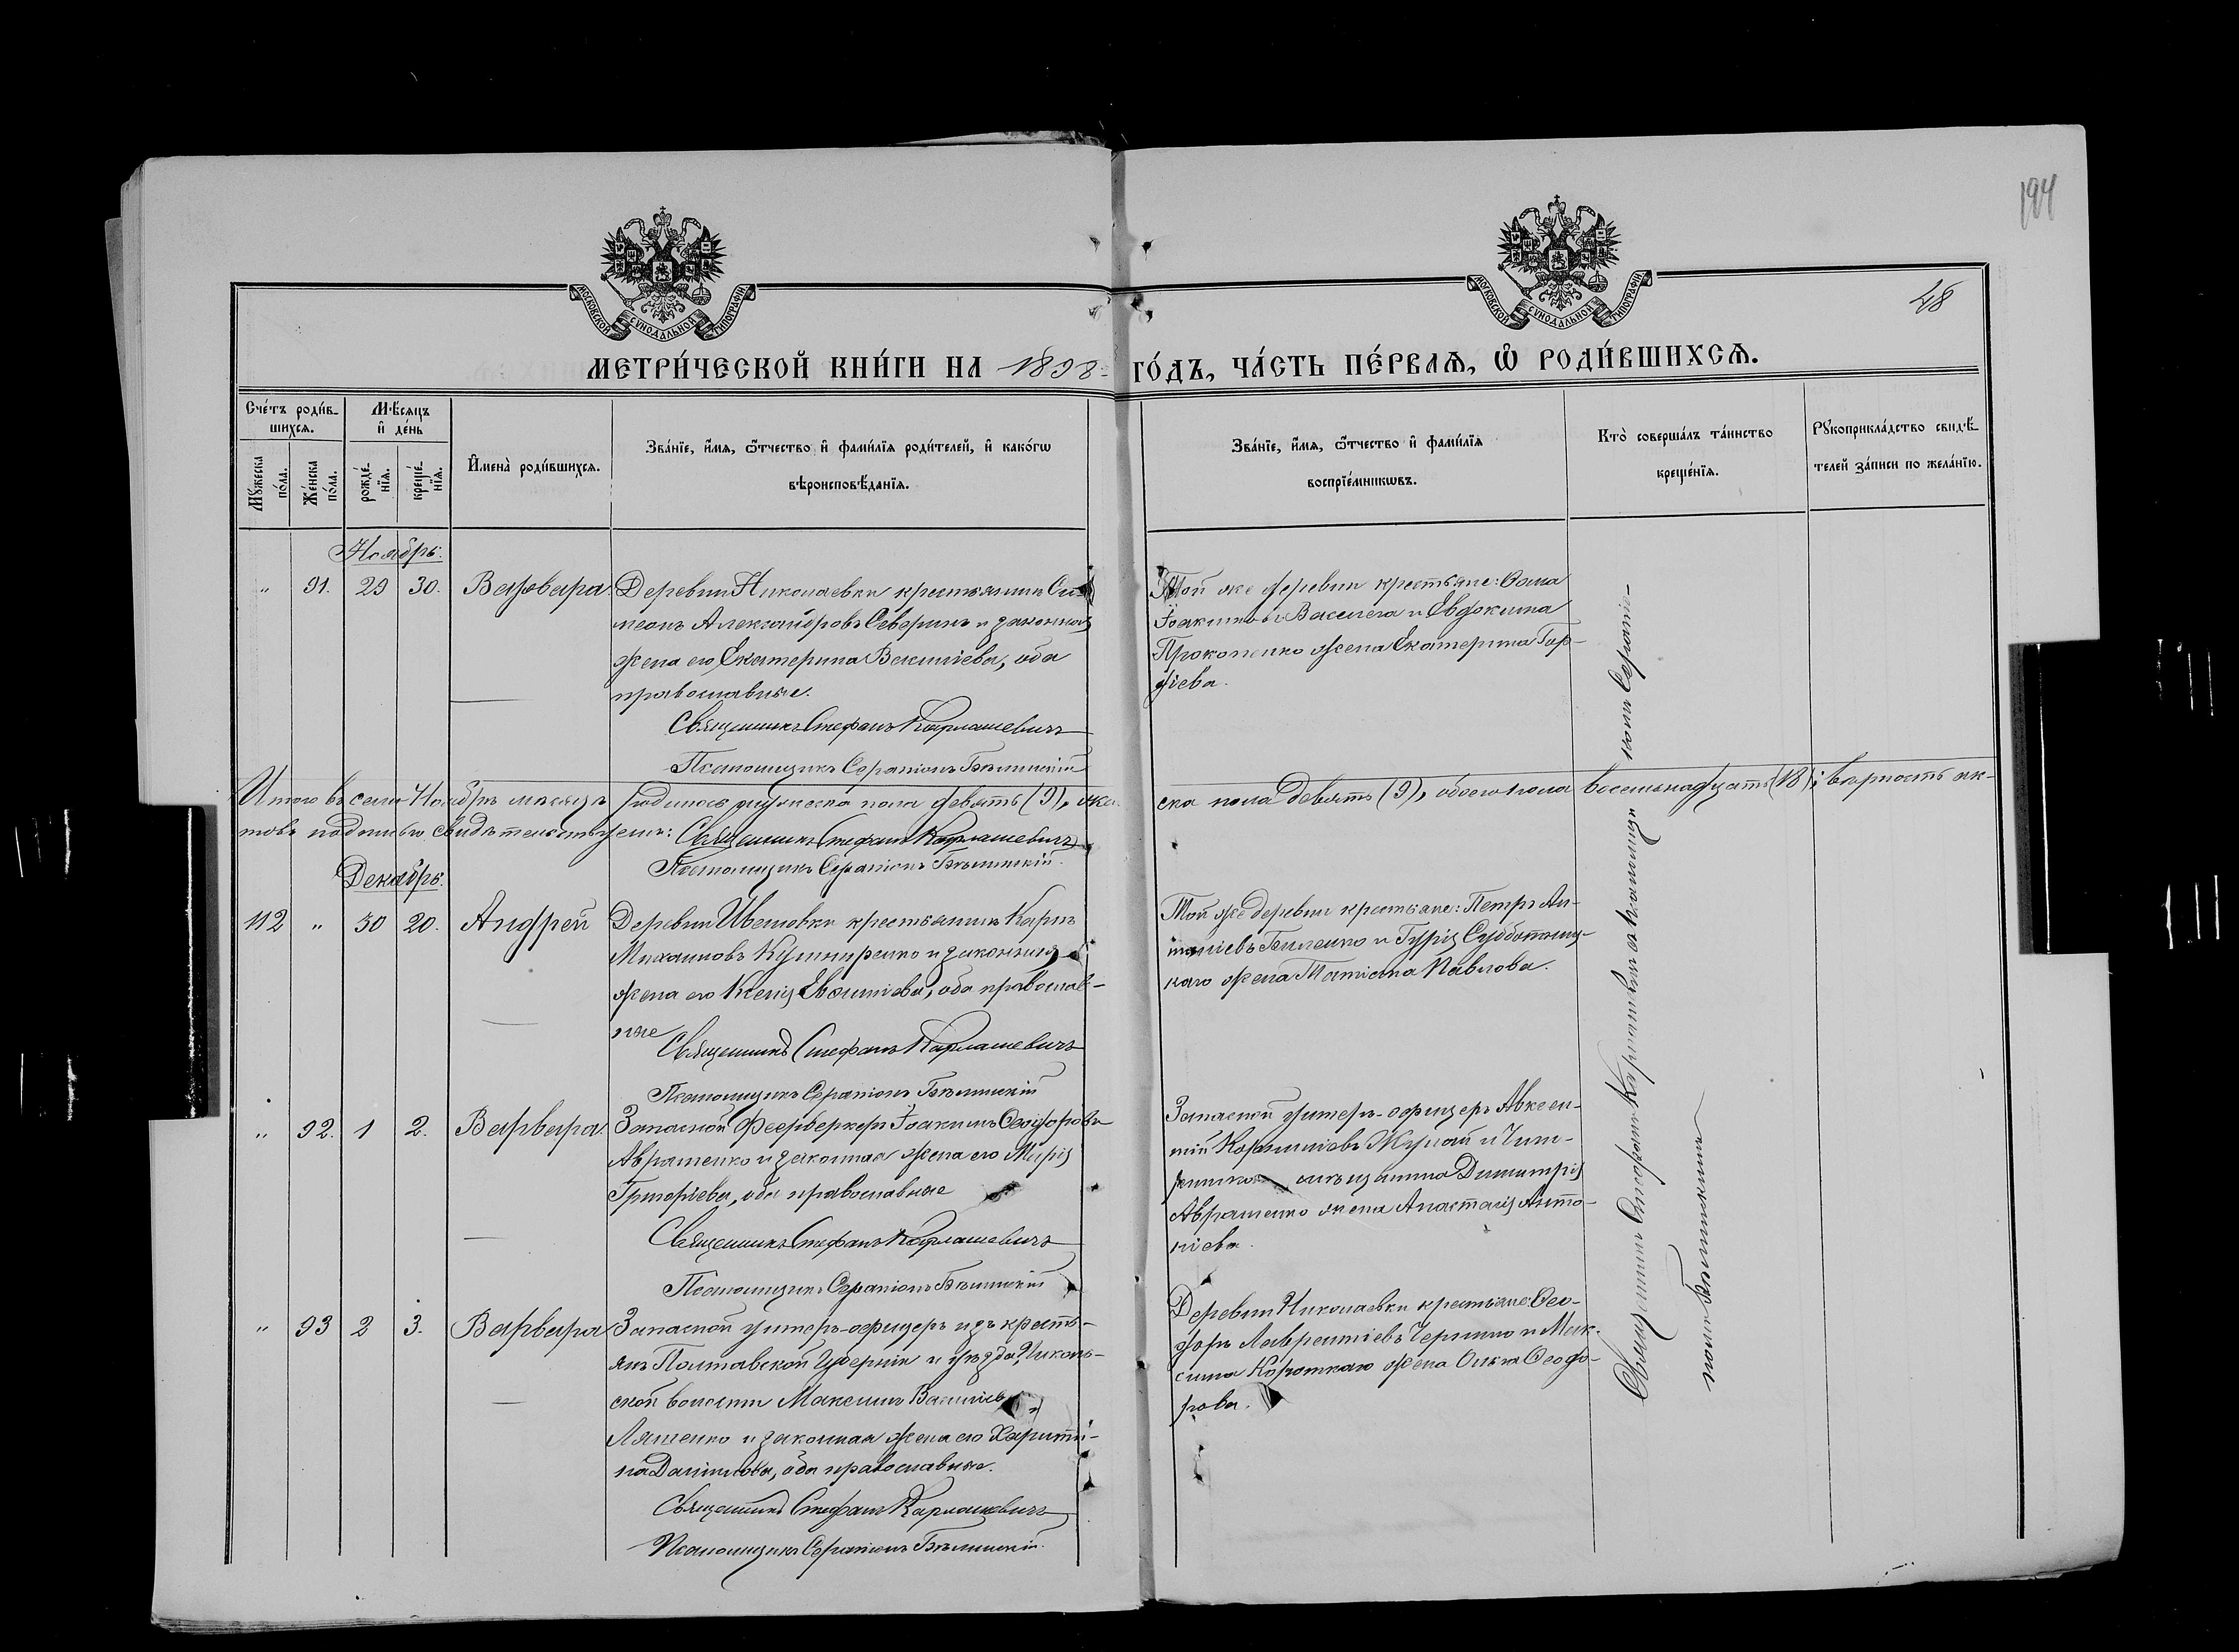 194
48
МОСКОВСКОЙ СѴНОДАЛЬНОЙ ТИПОГРАФІИ
МОСКОВСКОЙ СѴНОДАЛЬНОЙ ТИПОГРАФІИ
МЕТРИ́ЧЕСКОЙ КНИ́ГИ НА 1898 ГО́ДЪ, ЧА́СТЬ ПЕ́РВАѦ, Ѡ РОДИ́ВШИХСѦ.
Сче́тъ роди́в-
шихсѧ.
Мꙋ́жеска
по́ла.
Же́нска
по́ла.
Мѣ́сѧцъ
и҆ де́нь
рожде́-
нїѧ.
креще́-
нїѧ.
И҆мена̀ роди́вшихсѧ.
Зва́нїе, и҆́мѧ, ѻ҆́тчество и҆ фами́лїѧ роди́телей, и҆ како́гѡ
вѣроисповѣ́данїѧ.
Зва́нїе, и҆́мѧ, ѻ҆́тчество и҆ фами́лїѧ
воспрїе́мникѡвъ.
Кто̀ соверша́лъ та́инство
креще́нїѧ.
Рꙋкоприкла́дство свидѣ́-
телей за́писи по жела́нїю.
Ноябрь.
„ 91. 29 30. Варвара
Деревни Николаевки крестьянинъ Си-
меонъ Александровъ Северинъ и законная
жена его Екатерина Василіева, оба
православные.
Священникъ Стефанъ Карпашевичъ
Псаломщикъ Серапіонъ Бѣлинскій
Той же деревни крестьяне: Ѳома
Іоакимовъ Василега и Евдокима
Прокопенко жена Екатерина Гор-
діева.
Итого въ семъ Ноябрѣ мѣсяцѣ родилось мужеска пола девять (9), жен-
ска пола девять (9), обоего пола восемьнадцать (18); вѣрность ак-
товъ подписью свидѣтельствуемъ: Священникъ Стефанъ Карпашевичъ
Псаломщикъ Серапіонъ Бѣлинскій.
Декабрь.
112 „ 30 20. Андрей
Деревни Ивановки крестьянинъ Карпъ
Михаиловъ Кушниренко и законная
жена его Ксенія Евѳиміева, оба православ-
ные
Священникъ Стефанъ Карпашевичъ
Псаломщикъ Серапіонъ Бѣлинскій
Той же деревни крестьяне: Петръ Ан-
Биленко и Гурія Субботниц-
каго жена Татіана Павлова.
„ 92. 1 2. Варвара.
Запасной фейерверкеръ Іоакимъ Ѳеодоровъ
Авраменко и законная жена его Марія
Григоріева, оба православные
Священникъ Стефанъ Карпашевичъ
Псаломщикъ Серапіонъ Бѣлинскій
Запасной унтеръ-офицеръ Авксен-
тій Корниліевъ
мѣщанина Димитрія
Авраменко жена Анастасія Анто-
ніева.
„ 93 2 3. Варвара
Запасной унтеръ-офицеръ изъ кресть-
янъ Полтавской губерніи и уѣзда, Николь-
ской волости Максимъ Василіевъ
Ляшенко и законная жена его Харити-
на Даніилова, оба православные.
Священникъ Стефанъ Карпашевичъ
Псаломщикъ Серапіонъ Бѣлинскій.
Деревни Николаевки крестьяне: Ѳео-
доръ Лаврентіевъ и Мак-
сима Короткаго жена Ольга Ѳеодо-
рова.
Священникъ Стефанъ Карпашевичъ съ псаломщи-
комъ Серапіо-
номъ Бѣлинскимъ